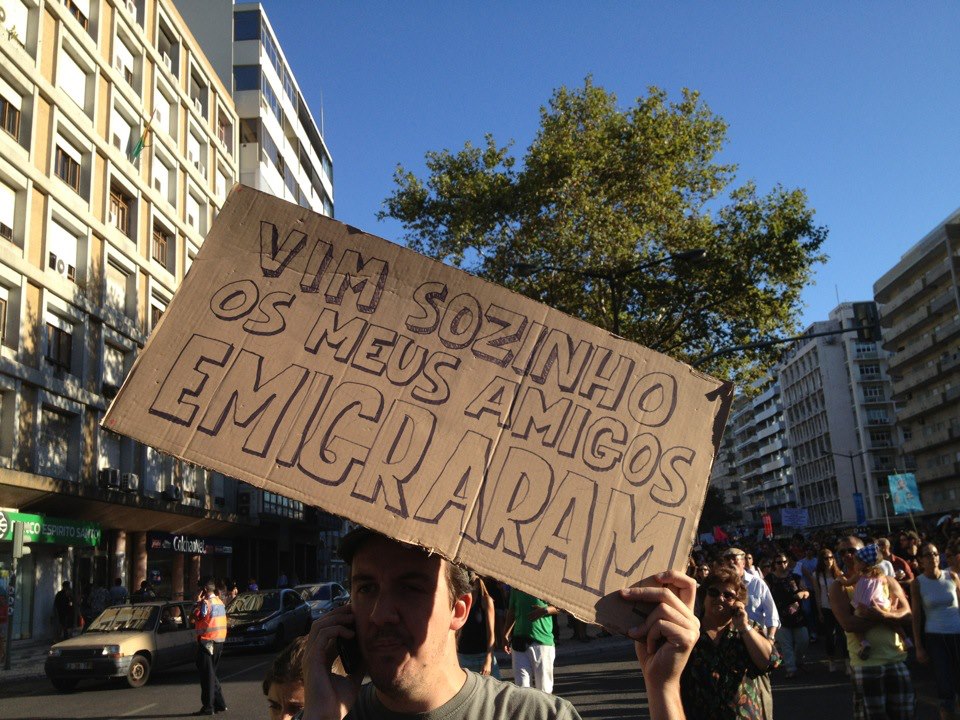 VIM SOZINHO
OS MEUS AMIGOS
EMIGRARAM
NCO ESPIRITO SANTO